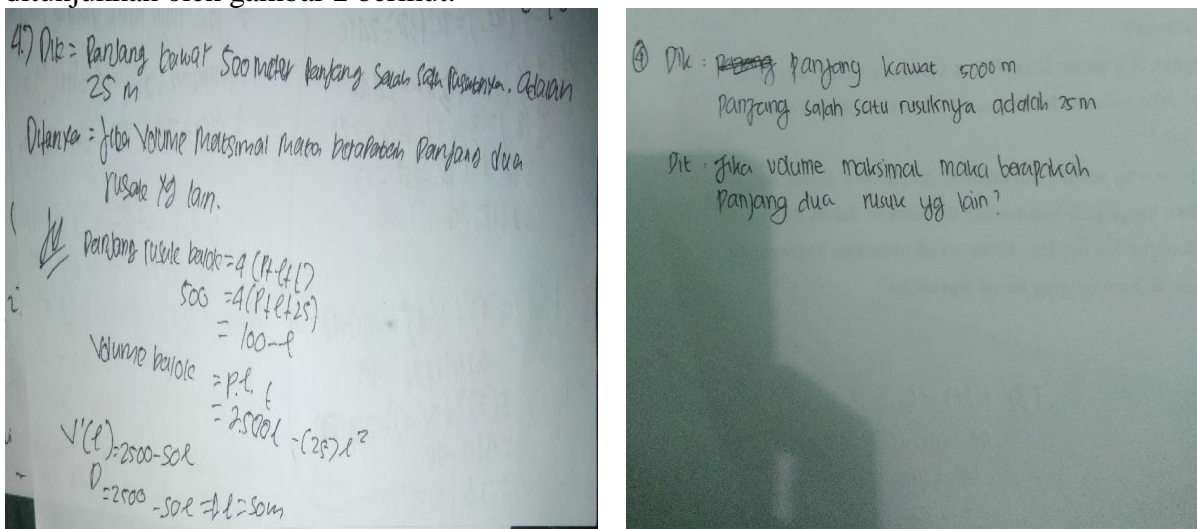 ditunjukkan oleh gambar 2 berikut.
4.) Dik = Panjang kawat 500 meter panjang salah satu rusuknya. adalah
25 m
Ditanya = Jika Volume Maksimal maka berapakah Panjang dua
rusuk yg lain.
Panjang rusuk balok = 4 (P+l+t)
500 = 4(P+l+25)
= 100-l
Volume balok = p.l.t
= 2.500l - (25)l²
V'(l) = 2500 - 50l
0 = 2500 - 50l => l = 50m
④ Dik : panjang kawat 5000 m
panjang salah satu rusuknya adalah 25 m
Dit : Jika volume maksimal maka berapakah
panjang dua rusuk yg lain?